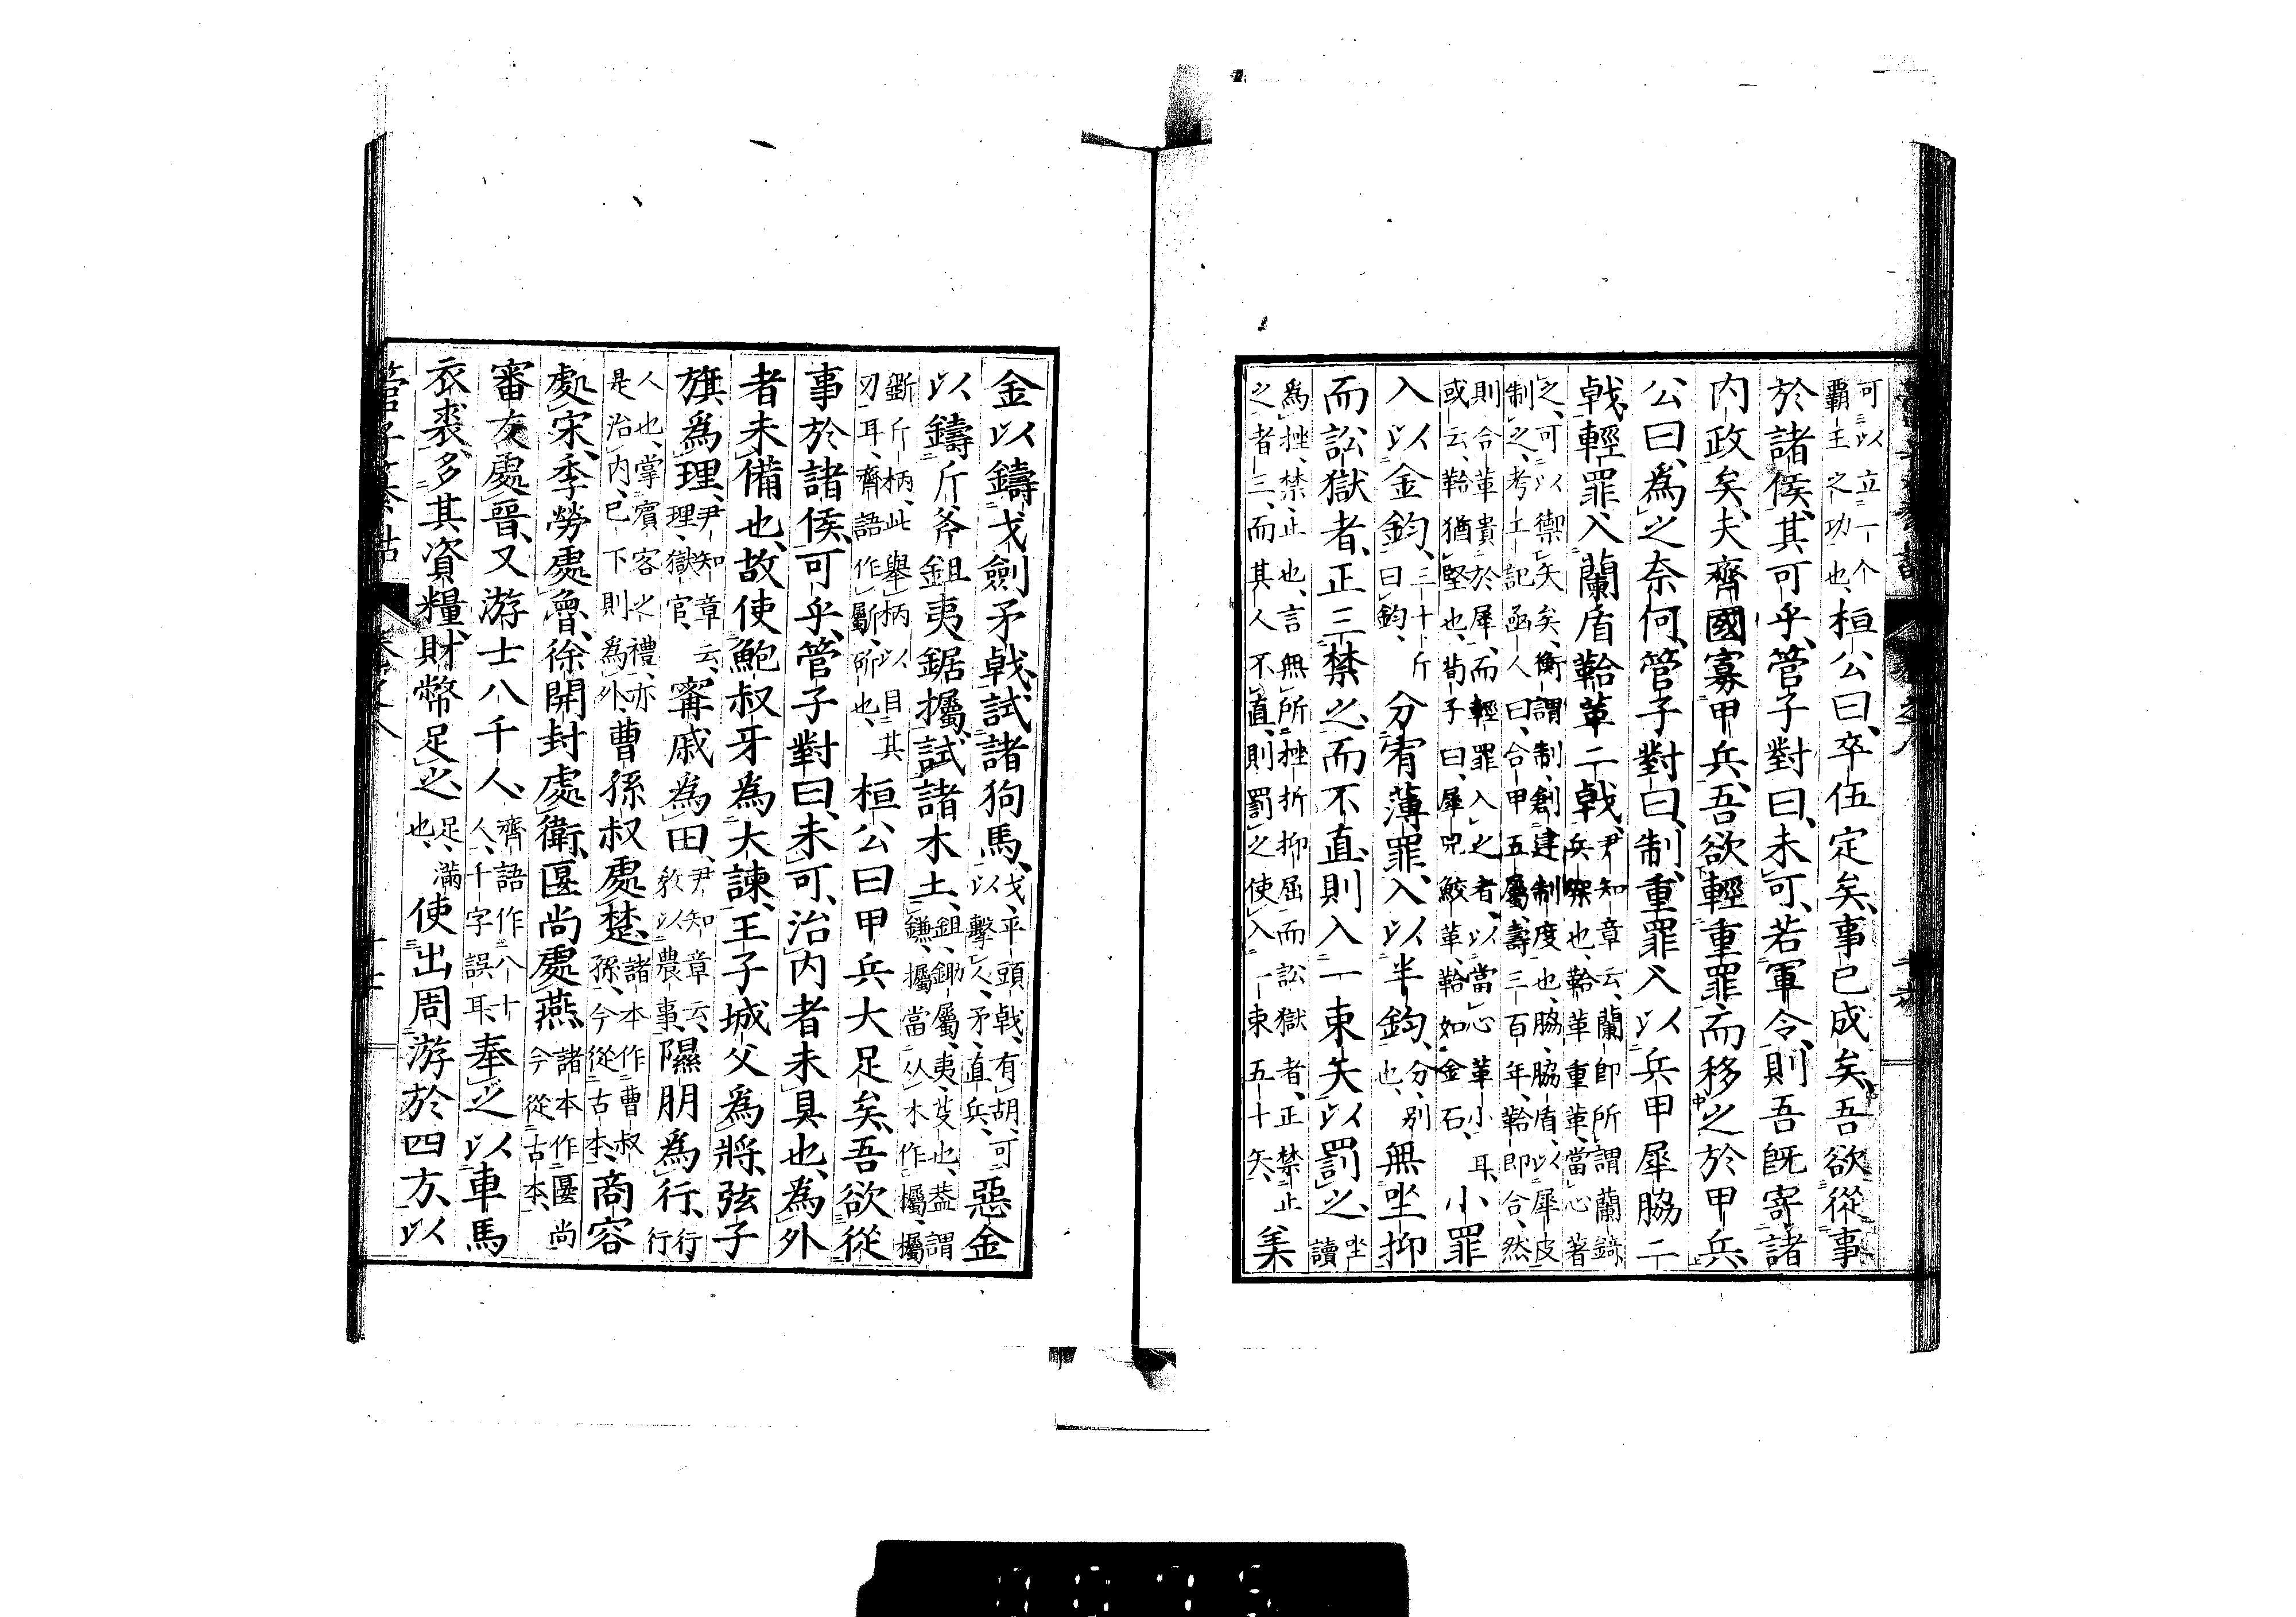 可以立一个
覇王之功也、桓公曰、卒伍定矣、事已成矣、吾欲從事
於諸侯、其可乎、管子對曰、未可、若軍令、則吾既寄諸
内政矣、夫齊國寡甲兵、吾欲輕重罪、而移之於甲兵、
公曰、爲之奈何、管子對曰、制、重罪入以兵甲犀脇二
戟、輕罪入蘭盾鞈革二戟、
尹知章云、蘭即所謂蘭錡、
兵架也、鞈革重革、當心著
之、可以禦矢矣、衡謂制、創建制度也、脇、脇盾、以犀皮
制之、考工記函人曰、合甲五屬、壽三百年、鞈即合、然
則合革貴於犀、而輕罪入之者、以當心革小耳、
或云、鞈猶堅也、荀子曰、犀兕鮫革、鞈如金石、小罪
入以金鈞、
三十斤
曰鈞、
分宥薄罪、入以半鈞、
分、別
也、
無坐抑
而訟獄者、正三禁之、而不直、則入一束矢以罰之、
坐
讀
爲挫、禁、止也、言無所挫折抑屈而訟獄者、正禁止
之者三、而其人不直、則罰之使入一束五十矢、美
金以鑄戈劍矛戟、試諸狗馬、
戈、平頭戟、有胡、可
以擊人、矛、直兵、
惡金
以鑄斤斧鉏夷鋸欘、試諸木土、
鉏、鋤屬、夷、芟也、蓋謂
鎌、欘當从木作欘、欘
斸斤柄、此舉柄以目其
刃耳、齊語作斸、斫也、
桓公曰甲兵大足矣、吾欲從
事於諸侯、可乎、管子對曰、未可、治内者未具也、爲外
者未備也、故使鮑叔牙爲大諫、王子城父爲將、弦子
旗爲理、
尹知章云、
理、獄官、
甯戚爲田、
尹知章云、
教以農事、
隰朋爲行、
行、
行
人也、掌賓客之禮、亦
是治内、已下則爲外、
曹孫叔處楚、
諸本作曹叔
孫、今從古本、
商容
處宋、季勞處魯、徐開封處衛、匽尚處燕
諸本作匽尚
今從古本、
審友處晉、又游士八千人、
齊語作八十
人、千字誤耳、
奉之以車馬
衣裘、多其資糧、財幣足之、
足、滿
也、
使出周游於四方、以
管子纂詁